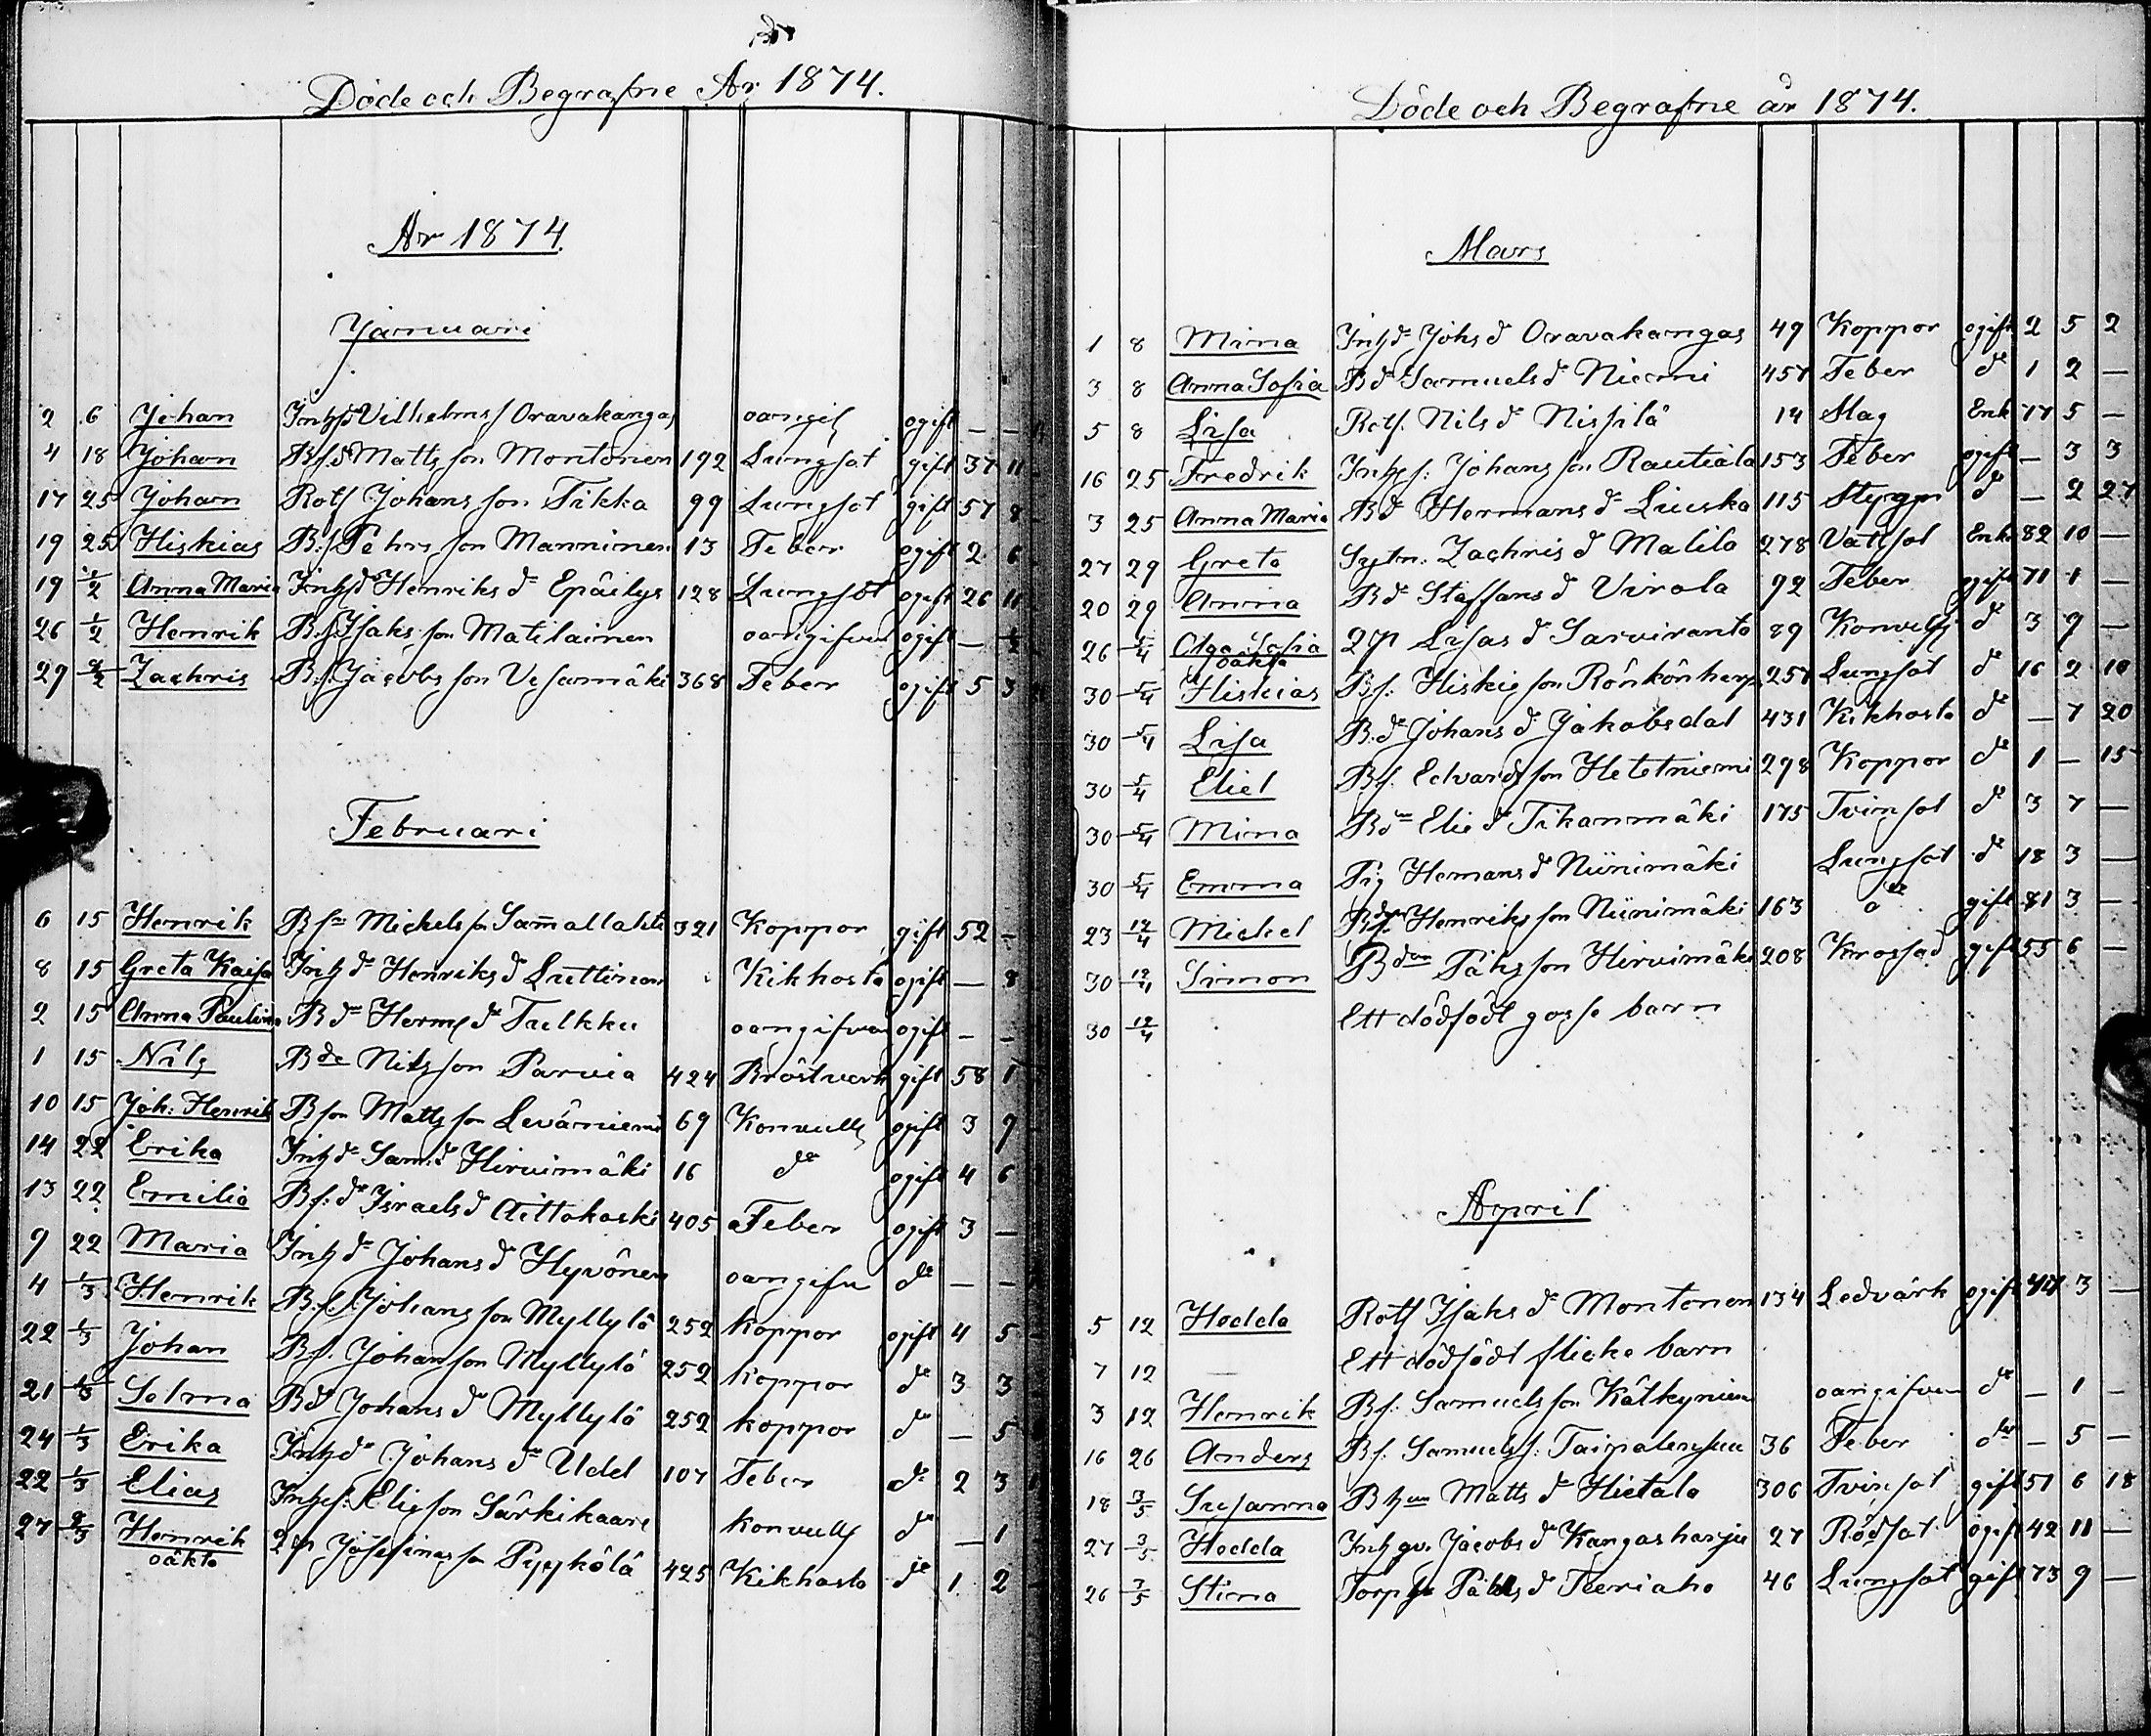 Döde och Begrafne År 1874.
År 1874
Januari
2 6 Johan Inhs Vilhelms s Oravakangas oangif ogift — —
4 18 Johan Bfd Matts son Montonen 192 Lungsot gift 37 11
17 25 Johan Rotf Johans son Tikka 99 Lungsot gift 57 8
19 25 Hiskias B.s Pehrs son Manninen 13 Feber ogift 2 6
19 1/2 Anna Maria Inhsd Henriks d Epäilys 128 Lungsot ogift 26 11
26 1/2 Henrik B.s Isaks son Matilainen oangifven ogift —
29 2/2 Zachris B.s Jacobs son Vesamäki 368 Feber ogift 5 3
Februari
6 15 Henrik Bsn Michels sn Sam̄allahti 321 Koppor gift 52 -
8 15 Greta Kaisa Inh d Henriks d Luttinen Kikhosta ogift — 8
2 15 Anna Paulina Bd Herms d Tulkku oangifven ogift — -
1 15 Nils Bde Nils son Parvia 424 Bröstverk gift 58 1
10 15 Joh. Henrik Bson Matts son Levärniemi 69 Konvulls ogift 3 9
14 22 Erika Inh d Sam. d Hirvimäki 16 do ogift 4 6
13 22 Emilia Bf: d Israels d Aittokoski 405 Feber ogift 3 —
9 22 Maria Inh d Johans d Hyvönen oangifn do — -
4 1/3 Henrik B.s. Johans son Myllylä 252 Koppor ogift 4 5
22 1/3 Johan Bs. Johans son Myllylä 252 Koppor do 3 3
21 1/3 Selma Bd Johans d Myllylä 252 Koppor do — 5
24 1/3 Erika Inh d Johans d Udd 107 Feber do 2 3
22 1/3 Elias Inhs: Elis son Särkikaare konvulls do — 1
27 2/3 Henrik oäkta 2p Josefinas sn Pyykölä 425 Kikhosta do 1 2
Döde och Begrafne år 1874.
Mars
1 8 Mina Inhd Johs d Oravakangas 49 Koppor ogift 2 5 2
3 8 Anna Sofia Bd Samuels d Niemi 457 Feber do 1 2 —
5 8 Lisa Rotf. Nils d Nissilä 14 Slag Enk 77 5 —
16 25 Fredrik Inhs: Johans son Rautiala 153 Feber ogift — 3 3
3 25 Anna Maria Bd Hermans d Liuska 115 Styggn do — 2 27
27 29 Greta Zachris d Matila 278 Vattsot Enka 82 10 —
20 29 Anna Bd Staffans d Virola 92 Feber gift 71 1 —
26 5/4 Olga Sofia oäkta 2p Lisas d Sarviranta 89 Konvulls do 3 9 —
30 5/4 Hiskias Bs: Hiskis son Rönkönharju 257 Lungsot do 16 2 10
30 5/4 Lisa B.d Johans d Jakobsdal 431 Kikhosta do — 7 20
30 5/4 Eliel Bs. Edvards son Hetetniemi 298 Koppor do 1 — 15
30 5/4 Mina Bd Elis d Tikanmäki 175 Tvinsot do 3 7 —
30 5/4 Emma Pig Hemans d Niinimäki Lungsot do 18 3 —
23 12/4 Michel Henriks son Niinimäki 163 do gift 81 3 —
30 12/4 Simon Bdn Påhs son Hirvimäki 208 Krossad gift 55 6 —
30 12/4 Ett dödfödt gosse barn
April
5 12 Hedda Rotf Isaks d Montonen 134 Ledvärk ogift 47 3 —
7 12 — Ett dödfödt flicke barn
3 12 Henrik Bs: Samuels son Kätkynien oangifven do — 1 —
16 26 Anders Bs. Samuels s: Taipalensuu 36 Feber do — 5 —
18 3/5 Susanna Matts d Hietala 306 Tvinsot gift 51 6 18
27 3/5 Hedda Inhgv. Jacobs d Kangasharju 27 Rödsot ogift 42 11 —
26 3/5 Stina Påhls d Teeriaho 46 Lungsot gift 73 9 —